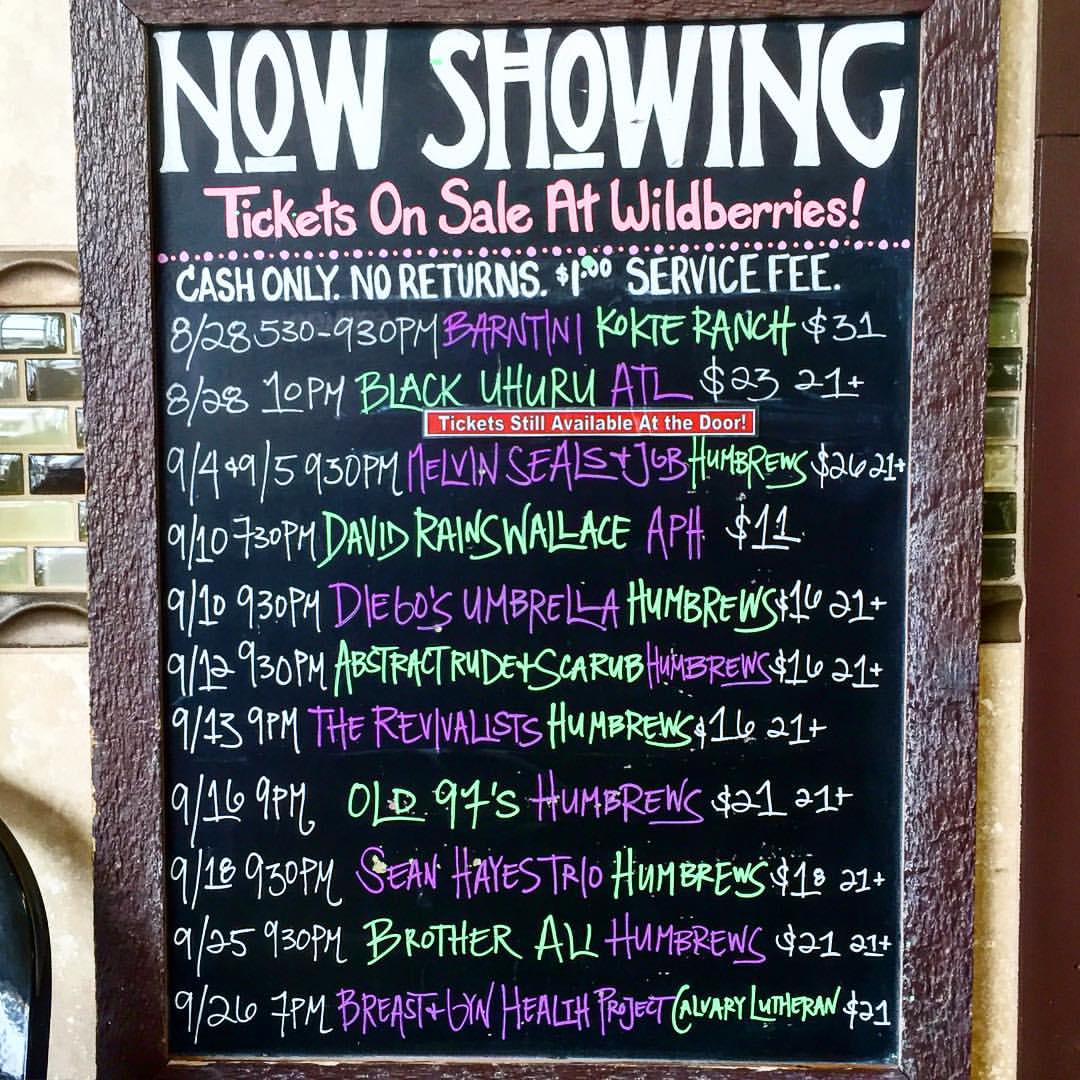 NOW SHOWING
Tickets On Sale At Wildberries!
CASH ONLY. NO RETURNS. $1.00 SERVICE FEE.
8/28 530-930PM BARNTINI KOKTE RANCH $31
8/28 10PM BLACK UHURU ATL $23 21+
Tickets Still Available At the Door!
9/4 & 9/5 930PM MELVIN SEALS + JGB HUMBREWS $26 21+
9/10 730PM DAVID RAINS WALLACE APH $11
9/10 930PM DIEGO'S UMBRELLA HUMBREWS $16 21+
9/12 930PM ABSTRACT RUDE + SCARUB HUMBREWS $16 21+
9/13 9PM THE REVIVALISTS HUMBREWS $16 21+
9/16 9PM OLD 97'S HUMBREWS $21 21+
9/18 930PM SEAN HAYES TRIO HUMBREWS $18 21+
9/25 930PM BROTHER ALI HUMBREWS $21 21+
9/26 7PM BREAST + GYN HEALTH PROJECT CALVARY LUTHERAN $21